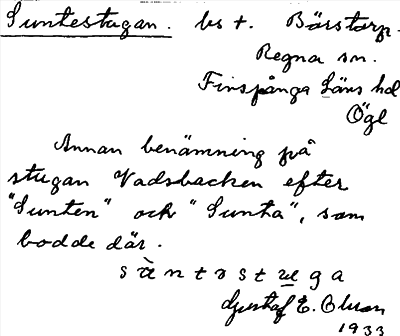 Suntestugan. bs t. Bärstorp.
Regna sn.
Finspånga Läns hd
Ögl
Annan benämning på
stugan Vadsbacken efter
"Sunten" och "Sunta", som
bodde där.
Gustaf E. Olsson
1933